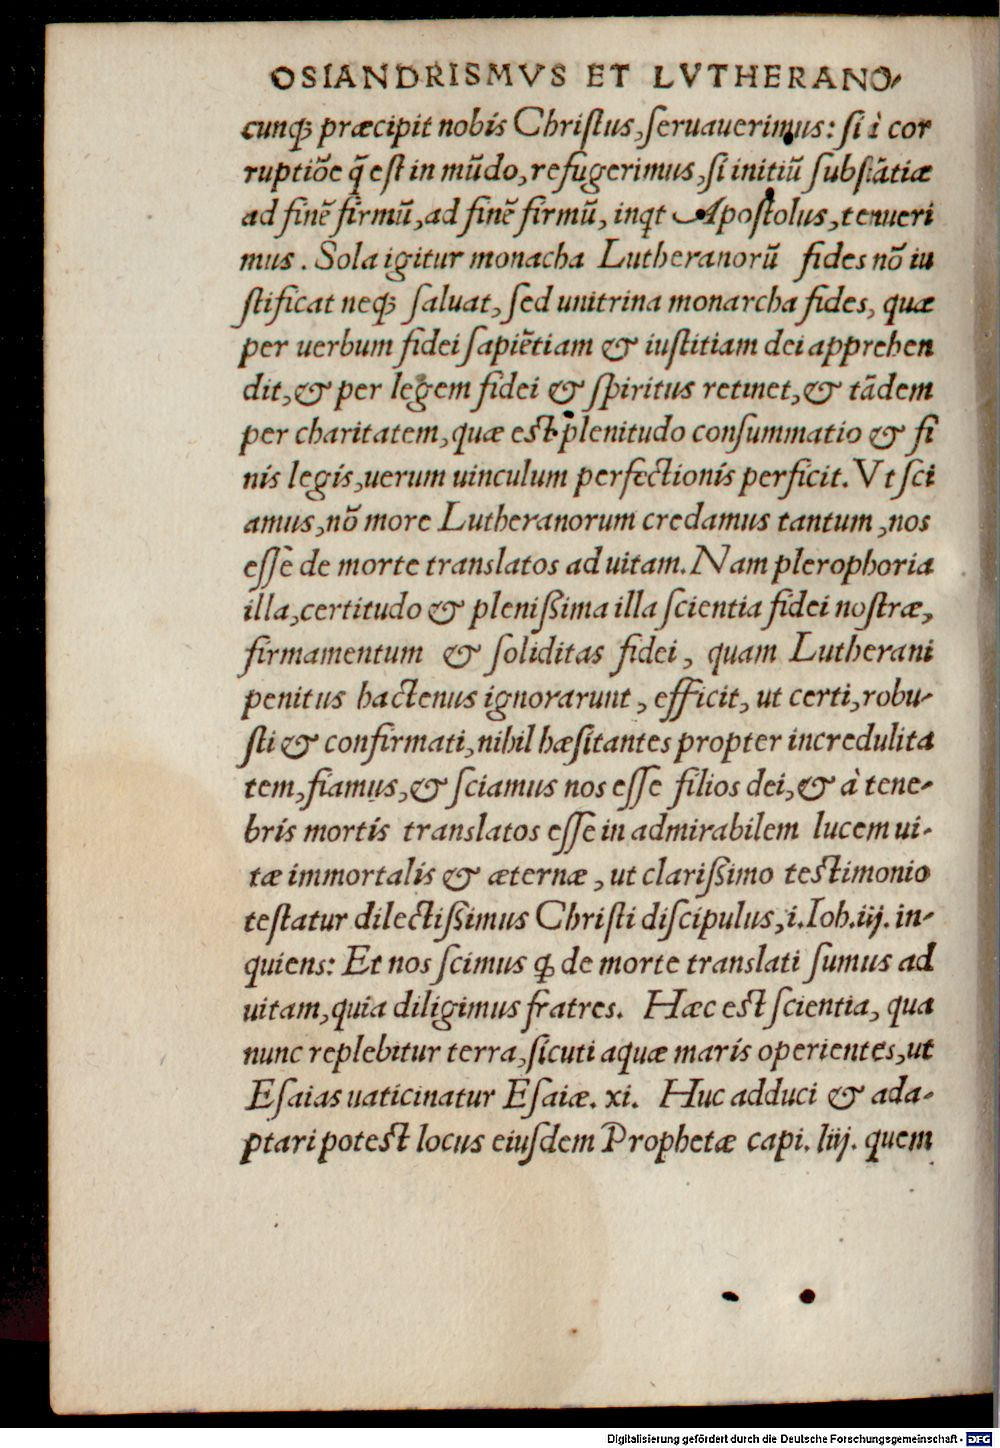 OSIANDRISMVS ET LVTHERANO-
cunqꝫ præcipit nobis Chriſtus, ſeruauerimus: ſi ī cor
ruptiōe q̄ eſt in mūdo, refugerimus, ſi initiū ſubſtātiæ
ad finē firmū, ad finē firmū, inqt Apoſtolus, tenueri
mus. Sola igitur monacha Lutheranorū fides nō iu
ſtificat neqꝫ ſaluat, ſed unitrina monarcha fides, quæ
per uerbum fidei ſapiētiam & iuſtitiam dei apprehen
dit, & per legem fidei & ſpiritus retinet, & tādem
per charitatem, quæ eſt plenitudo conſummatio & fi
nis legis, uerum uinculum perfectionis perficit. Vt ſci
amus, nō more Lutheranorum credamus tantum, nos
eſſe de morte translatos ad uitam. Nam plerophoria
illa, certitudo & pleniſsima illa ſcientia fidei noſtræ,
firmamentum & ſoliditas fidei, quam Lutherani
penitus hactenus ignorarunt, efficit, ut certi, robu-
ſti & confirmati, nihil hæſitantes propter incredulita
tem, fiamus, & ſciamus nos eſſe filios dei, & à tene-
bris mortis translatos eſſe in admirabilem lucem ui-
tæ immortalis & æternæ, ut clariſsimo teſtimonio
teſtatur dilectiſsimus Chriſti diſcipulus, i. Ioh. iij. in-
quiens: Et nos ſcimus ꝙ de morte translati ſumus ad
uitam, quia diligimus fratres. Hæc eſt ſcientia, qua
nunc replebitur terra, ſicuti aquæ maris operientes, ut
Eſaias uaticinatur Eſaiæ. xi. Huc adduci & ada-
ptari poteſt locus eiuſdem Prophetæ capi. liij. quem
Digitalisierung gefördert durch die Deutsche Forschungsgemeinschaft - DFG